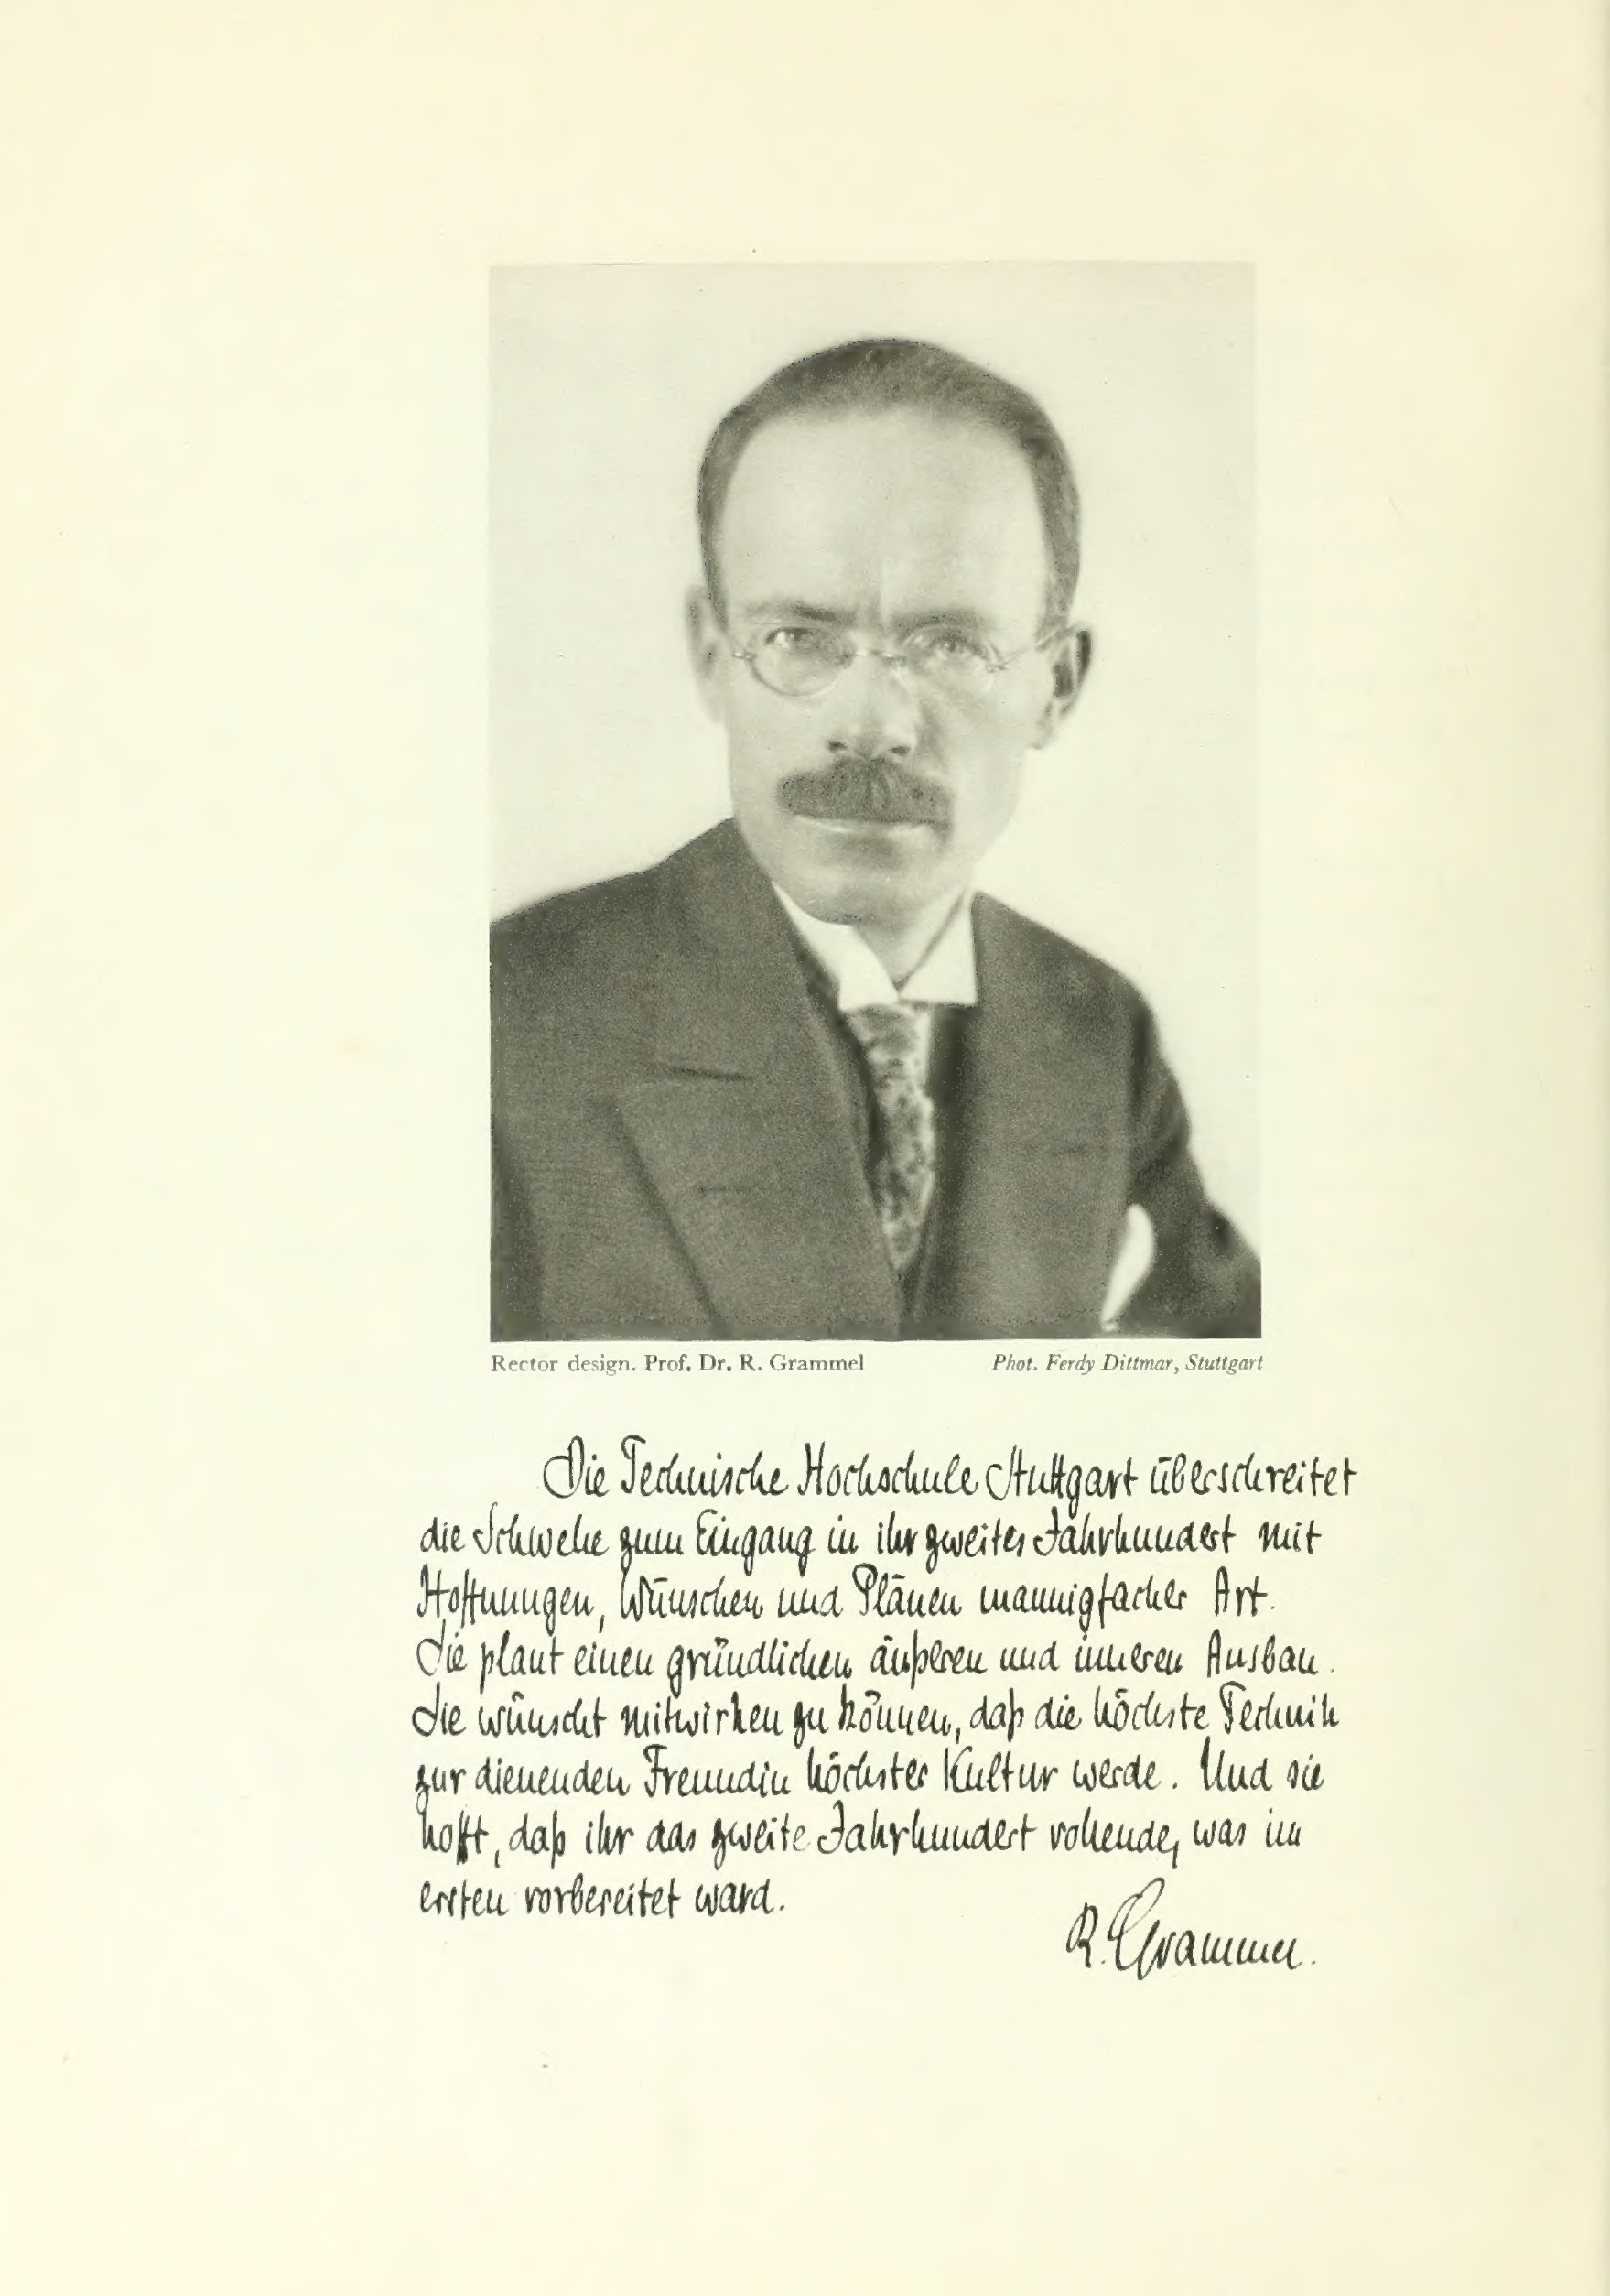 Rector design. Prof. Dr. R. Grammel
Phot. Ferdy Dittmar, Stuttgart
Die Technische Hochschule Stuttgart überschreitet
die Schwelle zum Eingang in ihr zweites Jahrhundert mit
Hoffnungen, Wünschen und Plänen mannigfacher Art.
Sie plant einen gründlichen äußeren und inneren Ausbau.
Sie wünscht mitwirken zu können, daß die höchste Technik
zur dienenden Freundin höchster Kultur werde. Und sie
hofft, daß ihr das zweite Jahrhundert vollende, was im
ersten vorbereitet ward.
R. Grammel.